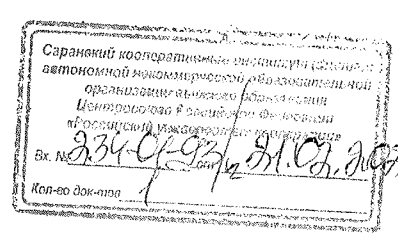 Саранский кооперативный институт (филиал)
автономной некоммерческой образовательной
организации высшего образования
Центросоюза Российской Федерации
«Российский университет кооперации»
Вх. № от 21.02.
Кол-во док-тов